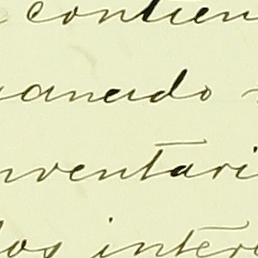 contien
uanado
nventari
los intere